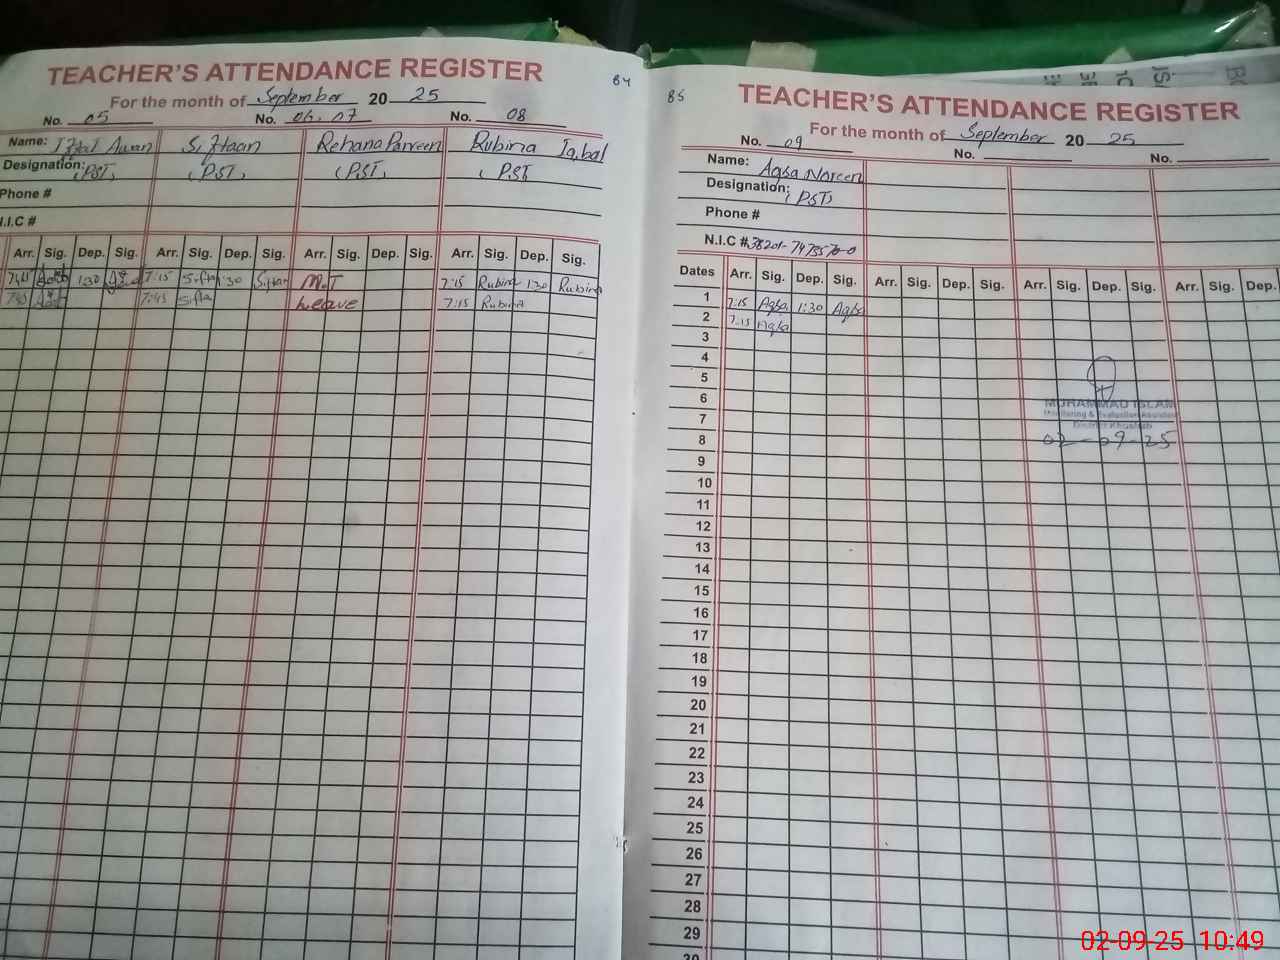 TEACHER'S ATTENDANCE REGISTER 84
For the month of September 20 25
No. 05 No. 06, 07 No. 08
Name: Awan Rehana Parveen Rubina Iqbal
Designation: (PST) (PST) (PST) (PST
Phone #
I.I.C #
Arr. Sig. Dep. Sig. Arr. Sig. Dep. Sig. Arr. Sig. Dep. Sig. Arr. Sig. Dep. Sig.
1:30 7:15 1:30 M.T 7:15 Rubina 1:30 Rubina
7:45 Leave 7:15 Rubina
85 TEACHER'S ATTENDANCE REGISTER
For the month of September 20 25
No. 09 No. No.
Name: Aqsa Noreen
Designation: (PST)
Phone #
N.I.C #
Dates Arr. Sig. Dep. Sig. Arr. Sig. Dep. Sig. Arr. Sig. Dep. Sig. Arr. Sig. Dep.
1 7:15 Aqsa 1:30 Aqsa
2 7:15 Aqsa
3
4
5
6
7
8
MUHAMMAD ISLAM
Monitoring & Evaluation Assistant
District Khushab
02-09-25
9
10
11
12
13
14
15
16
17
18
19
20
21
22
23
24
25
26
27
28
29
30
02-09-25 10:49